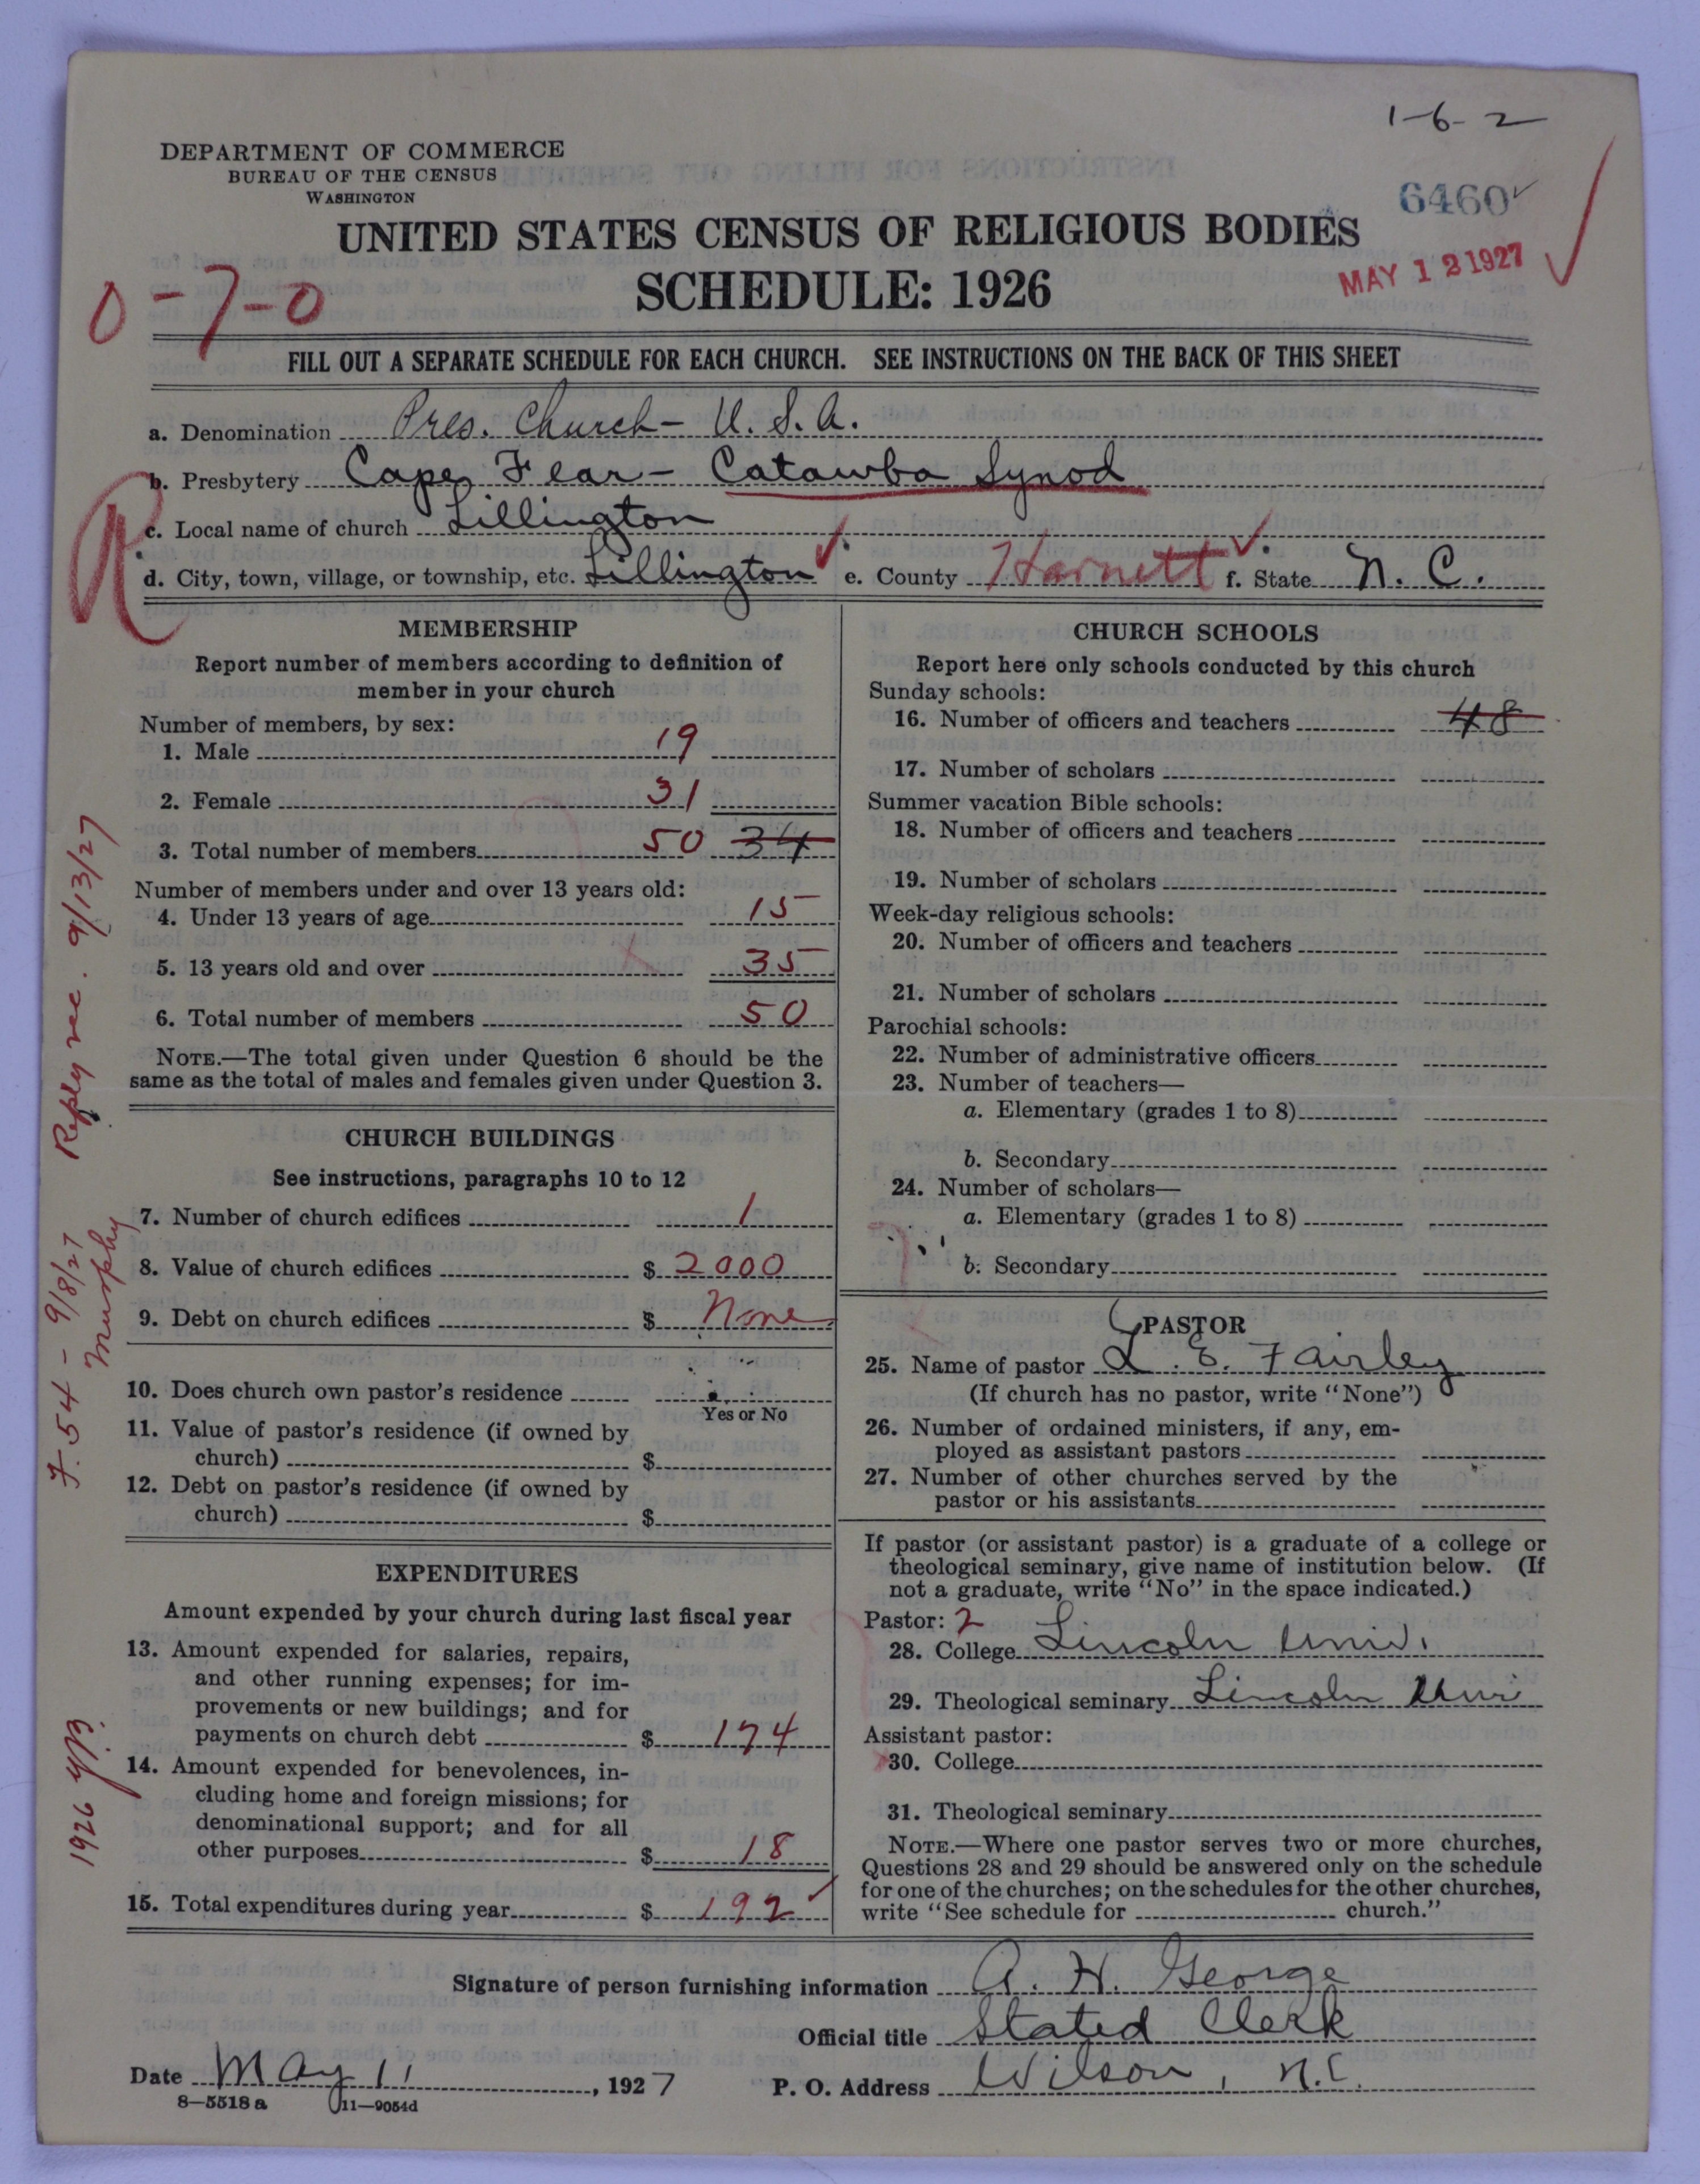 1-6-2
DEPARTMENT OF COMMERCE
BUREAU OF THE CENSUS
WASHINGTON
6460
UNITED STATES CENSUS OF RELIGIOUS BODIES
SCHEDULE: 1926
MAY 12 1927
0-7-0
FILL OUT A SEPARATE SCHEDULE FOR EACH CHURCH. SEE INSTRUCTIONS ON THE BACK OF THIS SHEET
a. Denomination Pres. Church - U. S. A.
b. Presbytery Cape Fear - Catawba Synod
R
c. Local name of church Lillington
d. City, town, village, or township, etc. Lillington e. County Harnett f. State N. C.
MEMBERSHIP
Report number of members according to definition of
member in your church
Number of members, by sex:
1. Male 19
2. Female 31
3. Total number of members 50 34
Number of members under and over 13 years old:
4. Under 13 years of age 15
5. 13 years old and over 35
6. Total number of members 50
NOTE.—The total given under Question 6 should be the
same as the total of males and females given under Question 3.
CHURCH BUILDINGS
See instructions, paragraphs 10 to 12
7. Number of church edifices 1
8. Value of church edifices $ 2000
9. Debt on church edifices $ None
10. Does church own pastor's residence
Yes or No
11. Value of pastor's residence (if owned by
church) $
12. Debt on pastor's residence (if owned by
church) $
EXPENDITURES
Amount expended by your church during last fiscal year
13. Amount expended for salaries, repairs,
and other running expenses; for im-
provements or new buildings; and for
payments on church debt $ 174
14. Amount expended for benevolences, in-
cluding home and foreign missions; for
denominational support; and for all
other purposes $ 18
15. Total expenditures during year $ 192
CHURCH SCHOOLS
Report here only schools conducted by this church
Sunday schools:
16. Number of officers and teachers 48
17. Number of scholars
Summer vacation Bible schools:
18. Number of officers and teachers
19. Number of scholars
Week-day religious schools:
20. Number of officers and teachers
21. Number of scholars
Parochial schools:
22. Number of administrative officers
23. Number of teachers—
a. Elementary (grades 1 to 8)
b. Secondary
24. Number of scholars—
a. Elementary (grades 1 to 8)
b. Secondary
PASTOR
25. Name of pastor L. E. Fairley
(If church has no pastor, write "None")
26. Number of ordained ministers, if any, em-
ployed as assistant pastors
27. Number of other churches served by the
pastor or his assistants
If pastor (or assistant pastor) is a graduate of a college or
theological seminary, give name of institution below. (If
not a graduate, write "No" in the space indicated.)
Pastor: 2
28. College Lincoln Univ.
29. Theological seminary Lincoln Uni
Assistant pastor:
30. College
31. Theological seminary
NOTE.—Where one pastor serves two or more churches,
Questions 28 and 29 should be answered only on the schedule
for one of the churches; on the schedules for the other churches,
write "See schedule for church."
Signature of person furnishing information A. H. George
Official title Stated Clerk
Date May 11, 1927 P. O. Address Wilson, N.C.
8—5518a 11—9054d
Reply rec. 9/13/27
F. 54 - 9/8/27
Murphy
1926 YB.